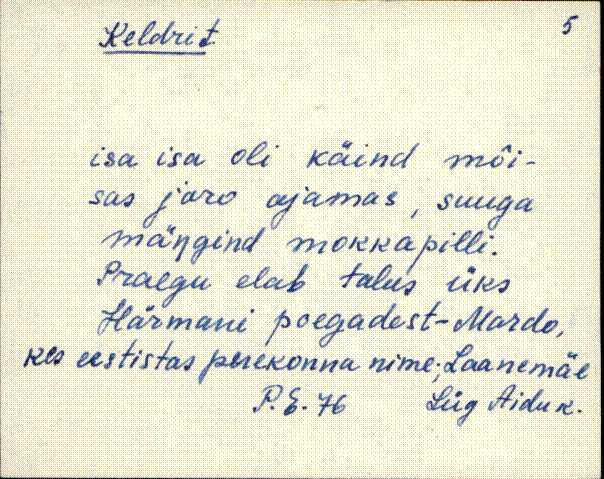 5
Keldrit
isa isa oli käind mõi-
sas joro ajamas, suuga
mäŋgind mokkapilli.
Praegu elab talus üks
Härmani poegadest-Mardo,
kes eestistas perekonna nime; Laanemäe
P.E. 76 Lüg Aidu k.